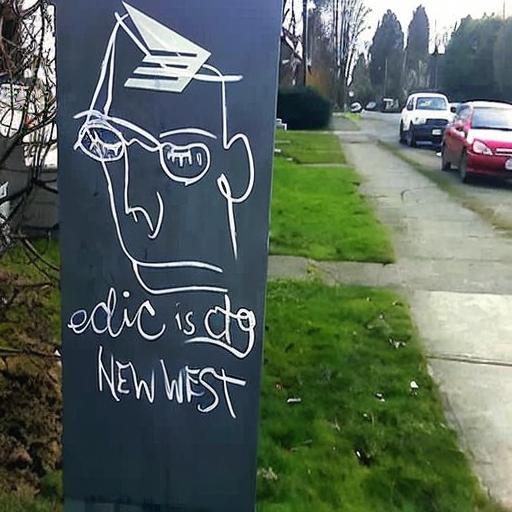 edic is dg
NEW WEST